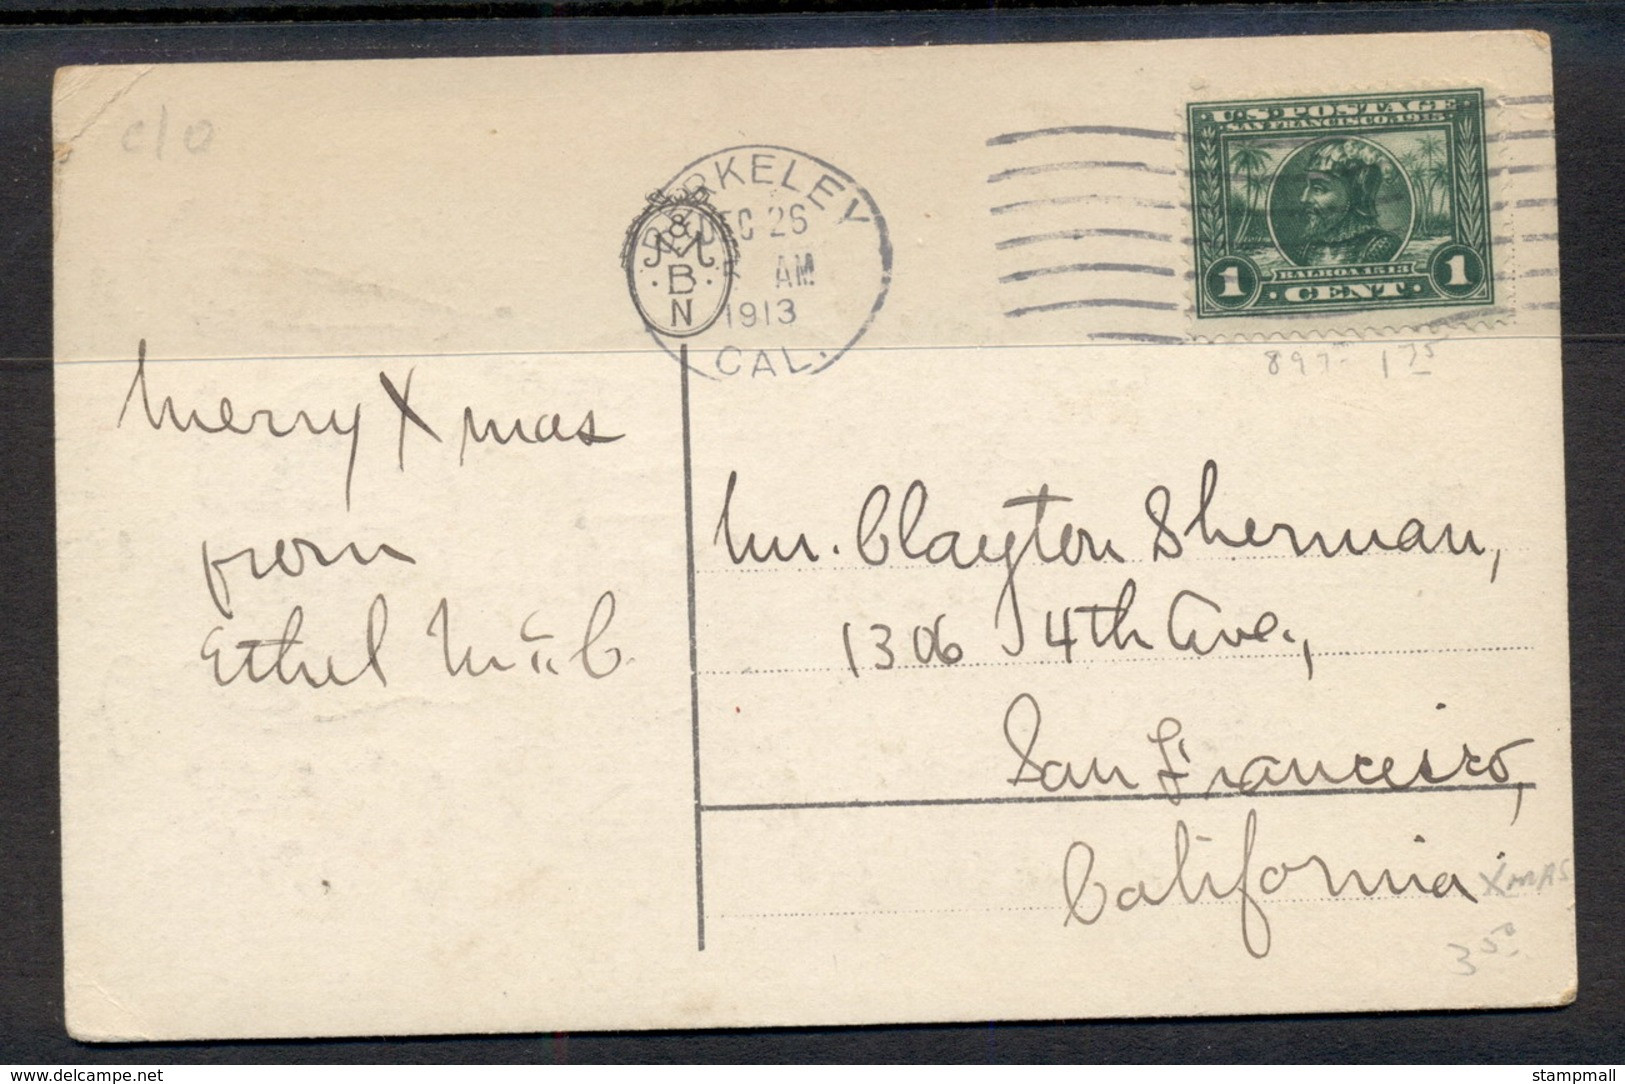 c/o
BERKELEY
DEC 26
AM
1913
CAL.
&
M
B
N
U.S. POSTAGE
SAN FRANCISCO, 1915
BALBOA 1513
1 CENT 1
397- 1 75
Merry Xmas
from
Ethel
Mr. Clayton Sherman,
1306 14th Ave.,
San Francisco,
California
XMAS
3 50
www.delcampe.net
stampmall